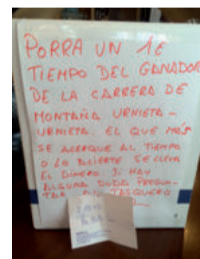 PORRA UN 1€
TIEMPO DEL GANADOR
DE LA CARRERA DE
MONTAÑA URNIETA -
URNIETA. EL QUE MÁS
SE ACERQUE AL TIEMPO
O LO ACIERTE SE LLEVA
EL DINERO. SI HAY
ALGUNA DUDA PREGUN-
TAR TASQUERO